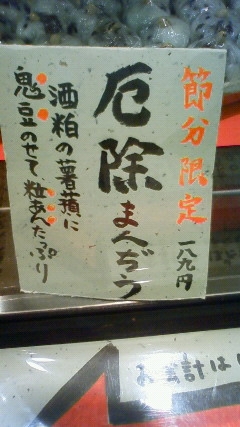 節分限定
一八九円
厄除
まんぢう
酒粕の薯蕷に
鬼豆のせて、粒あんたっぷり
お会計は